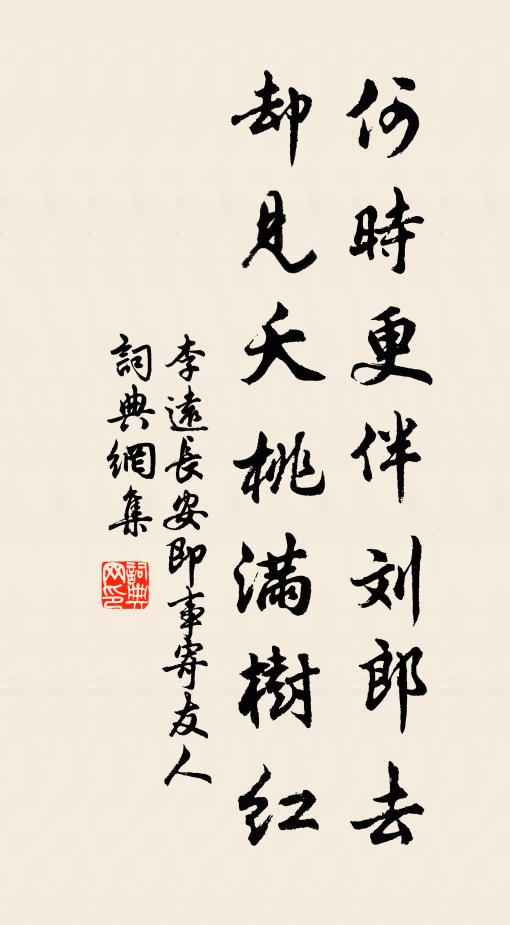 何時更伴刘郎去
却見夭桃滿樹红
李遠長安即事寄友人
詞典網集
詞典网印